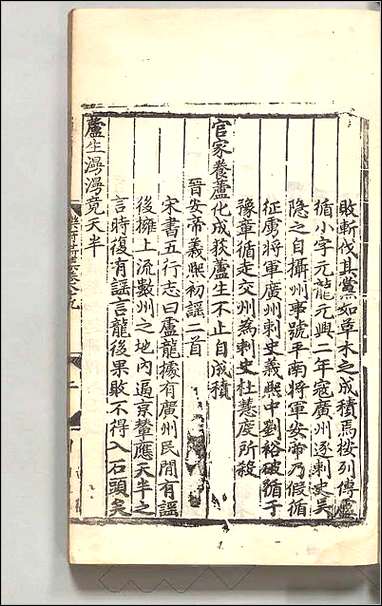 敗斬伐其黨如草木之成積焉按列傳盧
循小字元龍元興二年寇廣州逐刺史吳
隱之自攝州事號平南將軍安帝乃假循
征虜將軍廣州刺史義熙中劉裕破循于
豫章循走交州為刺史杜慧度所殺
官家養蘆化成荻蘆生不止自成積
晉安帝義熙初謡二首
宋書五行志曰盧龍據有廣州民間有謡
後擁上流數州之地内逼京輦應天半之
言時復有謡言龍後果敗不得入石頭矣
蘆生漫漫竟天半